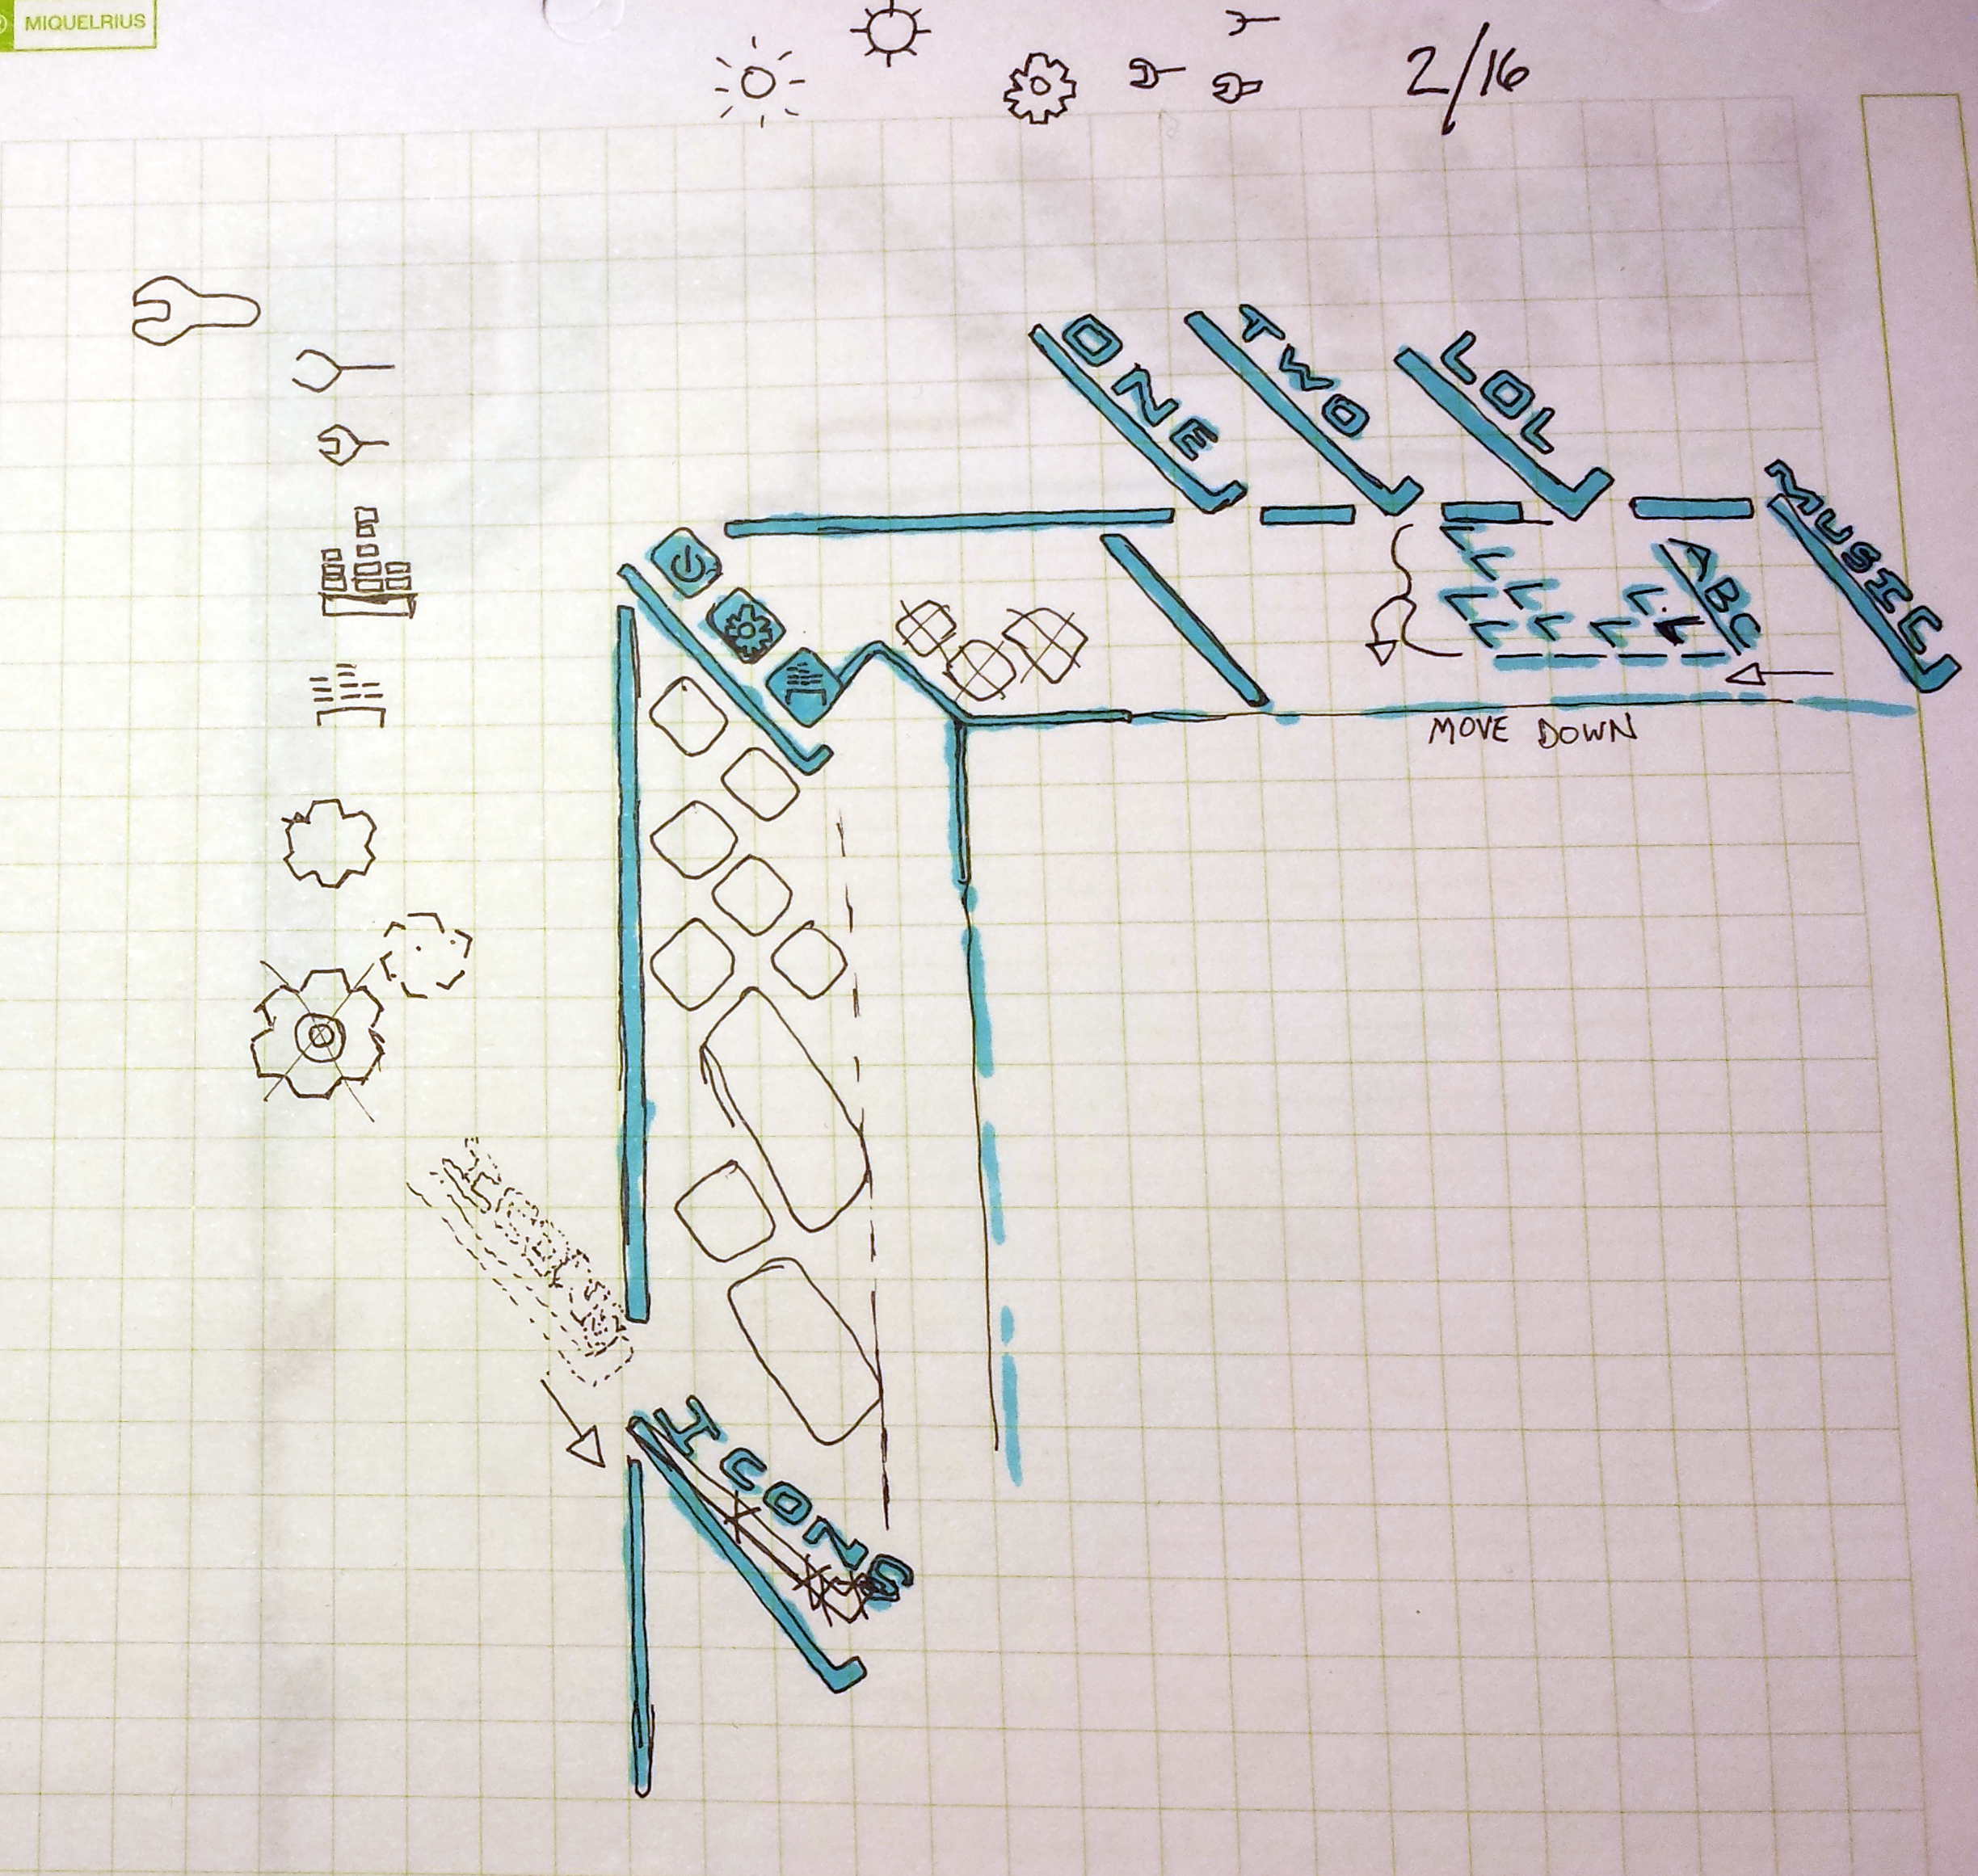 MIQUELRIUS
2/16
ONE
TWO
LOL
MUSIC
ABC
MOVE DOWN
ICONS